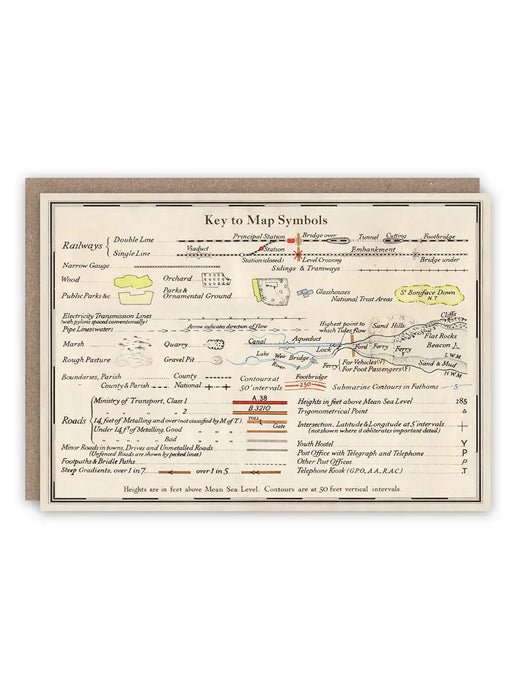 Key to Map Symbols
Railways { Double Line Principal Station Bridge over Tunnel Cutting Footbridge
Single Line Viaduct Station (closed) Level Crossing Embankment Bridge under
Narrow Gauge Sidings & Tramways
Wood Orchard Glasshouses St Boniface Down
N.T.
Public Parks &c Parks & Ornamental Ground National Trust Areas
Electricity Transmission Lines
(with pylons spaced conventionally)
Pipe Line (water) Arrow indicates direction of flow
Highest point to which Tides flow
Sand Hills Cliffs
Flat Rocks
Marsh Quarry Canal Aqueduct Lock Ford Ferry Beacon
Lake Weir Bridge Ferry Ferry L.W.M.
Rough Pasture Gravel Pit For Vehicles
(For Foot Passengers) Sand & Mud
H.W.M.
Boundaries, Parish County Contours at 50' intervals Footbridge
County & Parish National 250 Submarine Contours in Fathoms 5
Roads { Ministry of Transport, Class 1 A.38
" " 2 B.3210
14 feet of Metalling and over (not classified by M.of T.) TOLL Gate
Under 14 ft of Metalling, Good
" " Bad
Minor Roads in towns, Drives and Unmetalled Roads
(Unfenced Roads are shown by pecked lines)
Footpaths & Bridle Paths
Steep Gradients, over 1 in 7 over 1 in 5
Heights in feet above Mean Sea Level 285
Trigonometrical Point
Intersection, Latitude & Longitude at 5' intervals
(not shown where it obliterates important detail)
Youth Hostel Y
Post Office with Telegraph and Telephone P
Other Post Offices P
Telephone Kiosk (G.P.O, A.A, R.A.C) T
Heights are in feet above Mean Sea Level. Contours are at 50 feet vertical intervals.